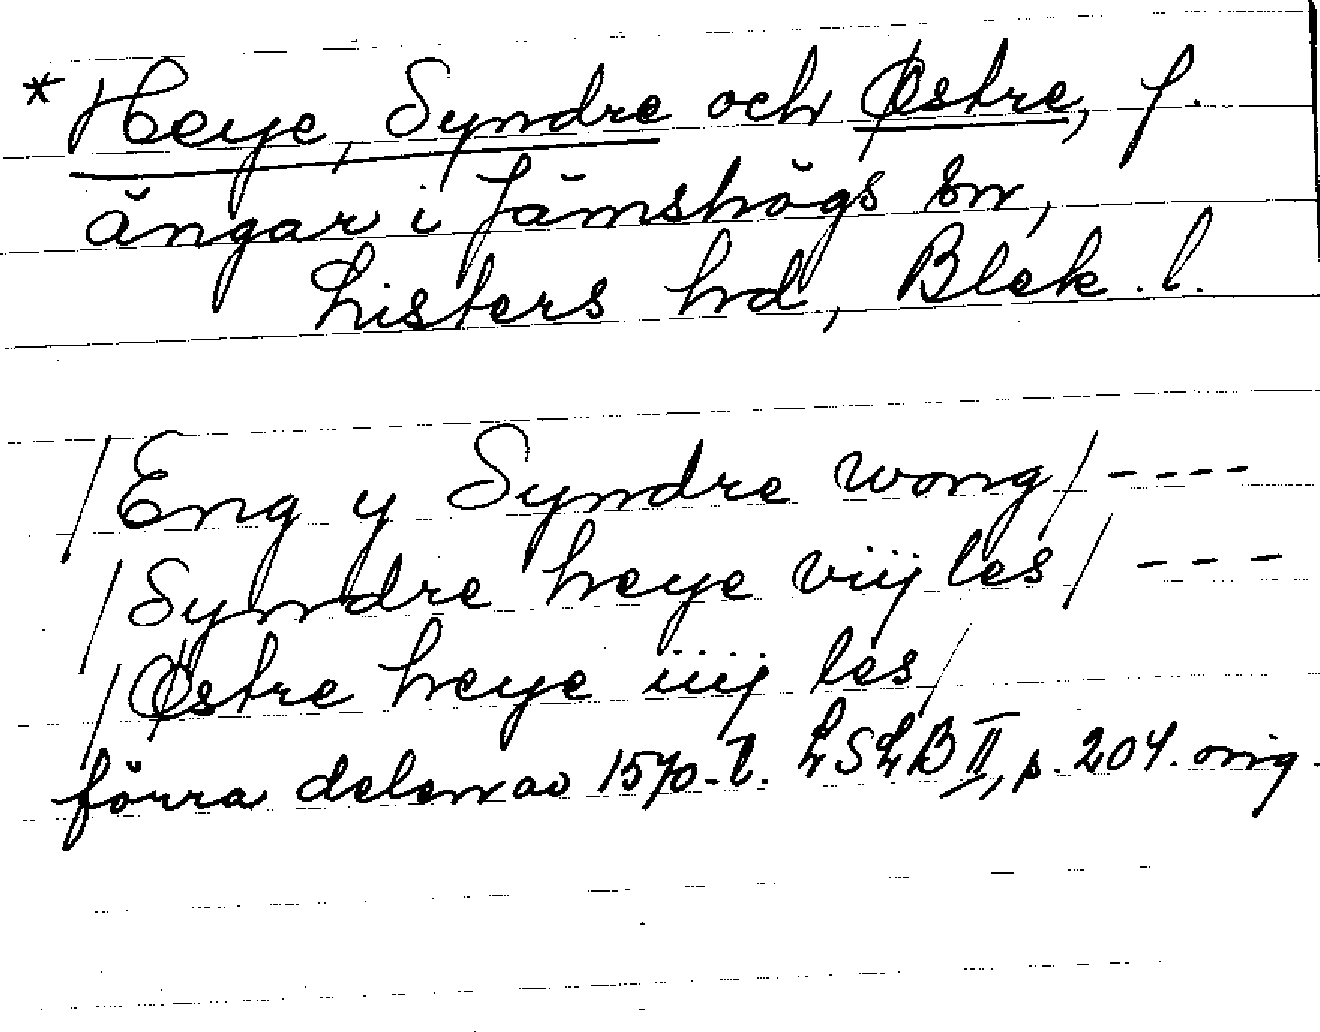 * Heye, Syndre och Østre, f.
ängar i Jämshögs sn,
Listers hd, Blek. l.
/Eng y Syndre wong/ ----
/Syndre heye viij les/ ---
/Østre heye iiij les/
förra delen av 1570-t. LSLB II, p. 204. orig.